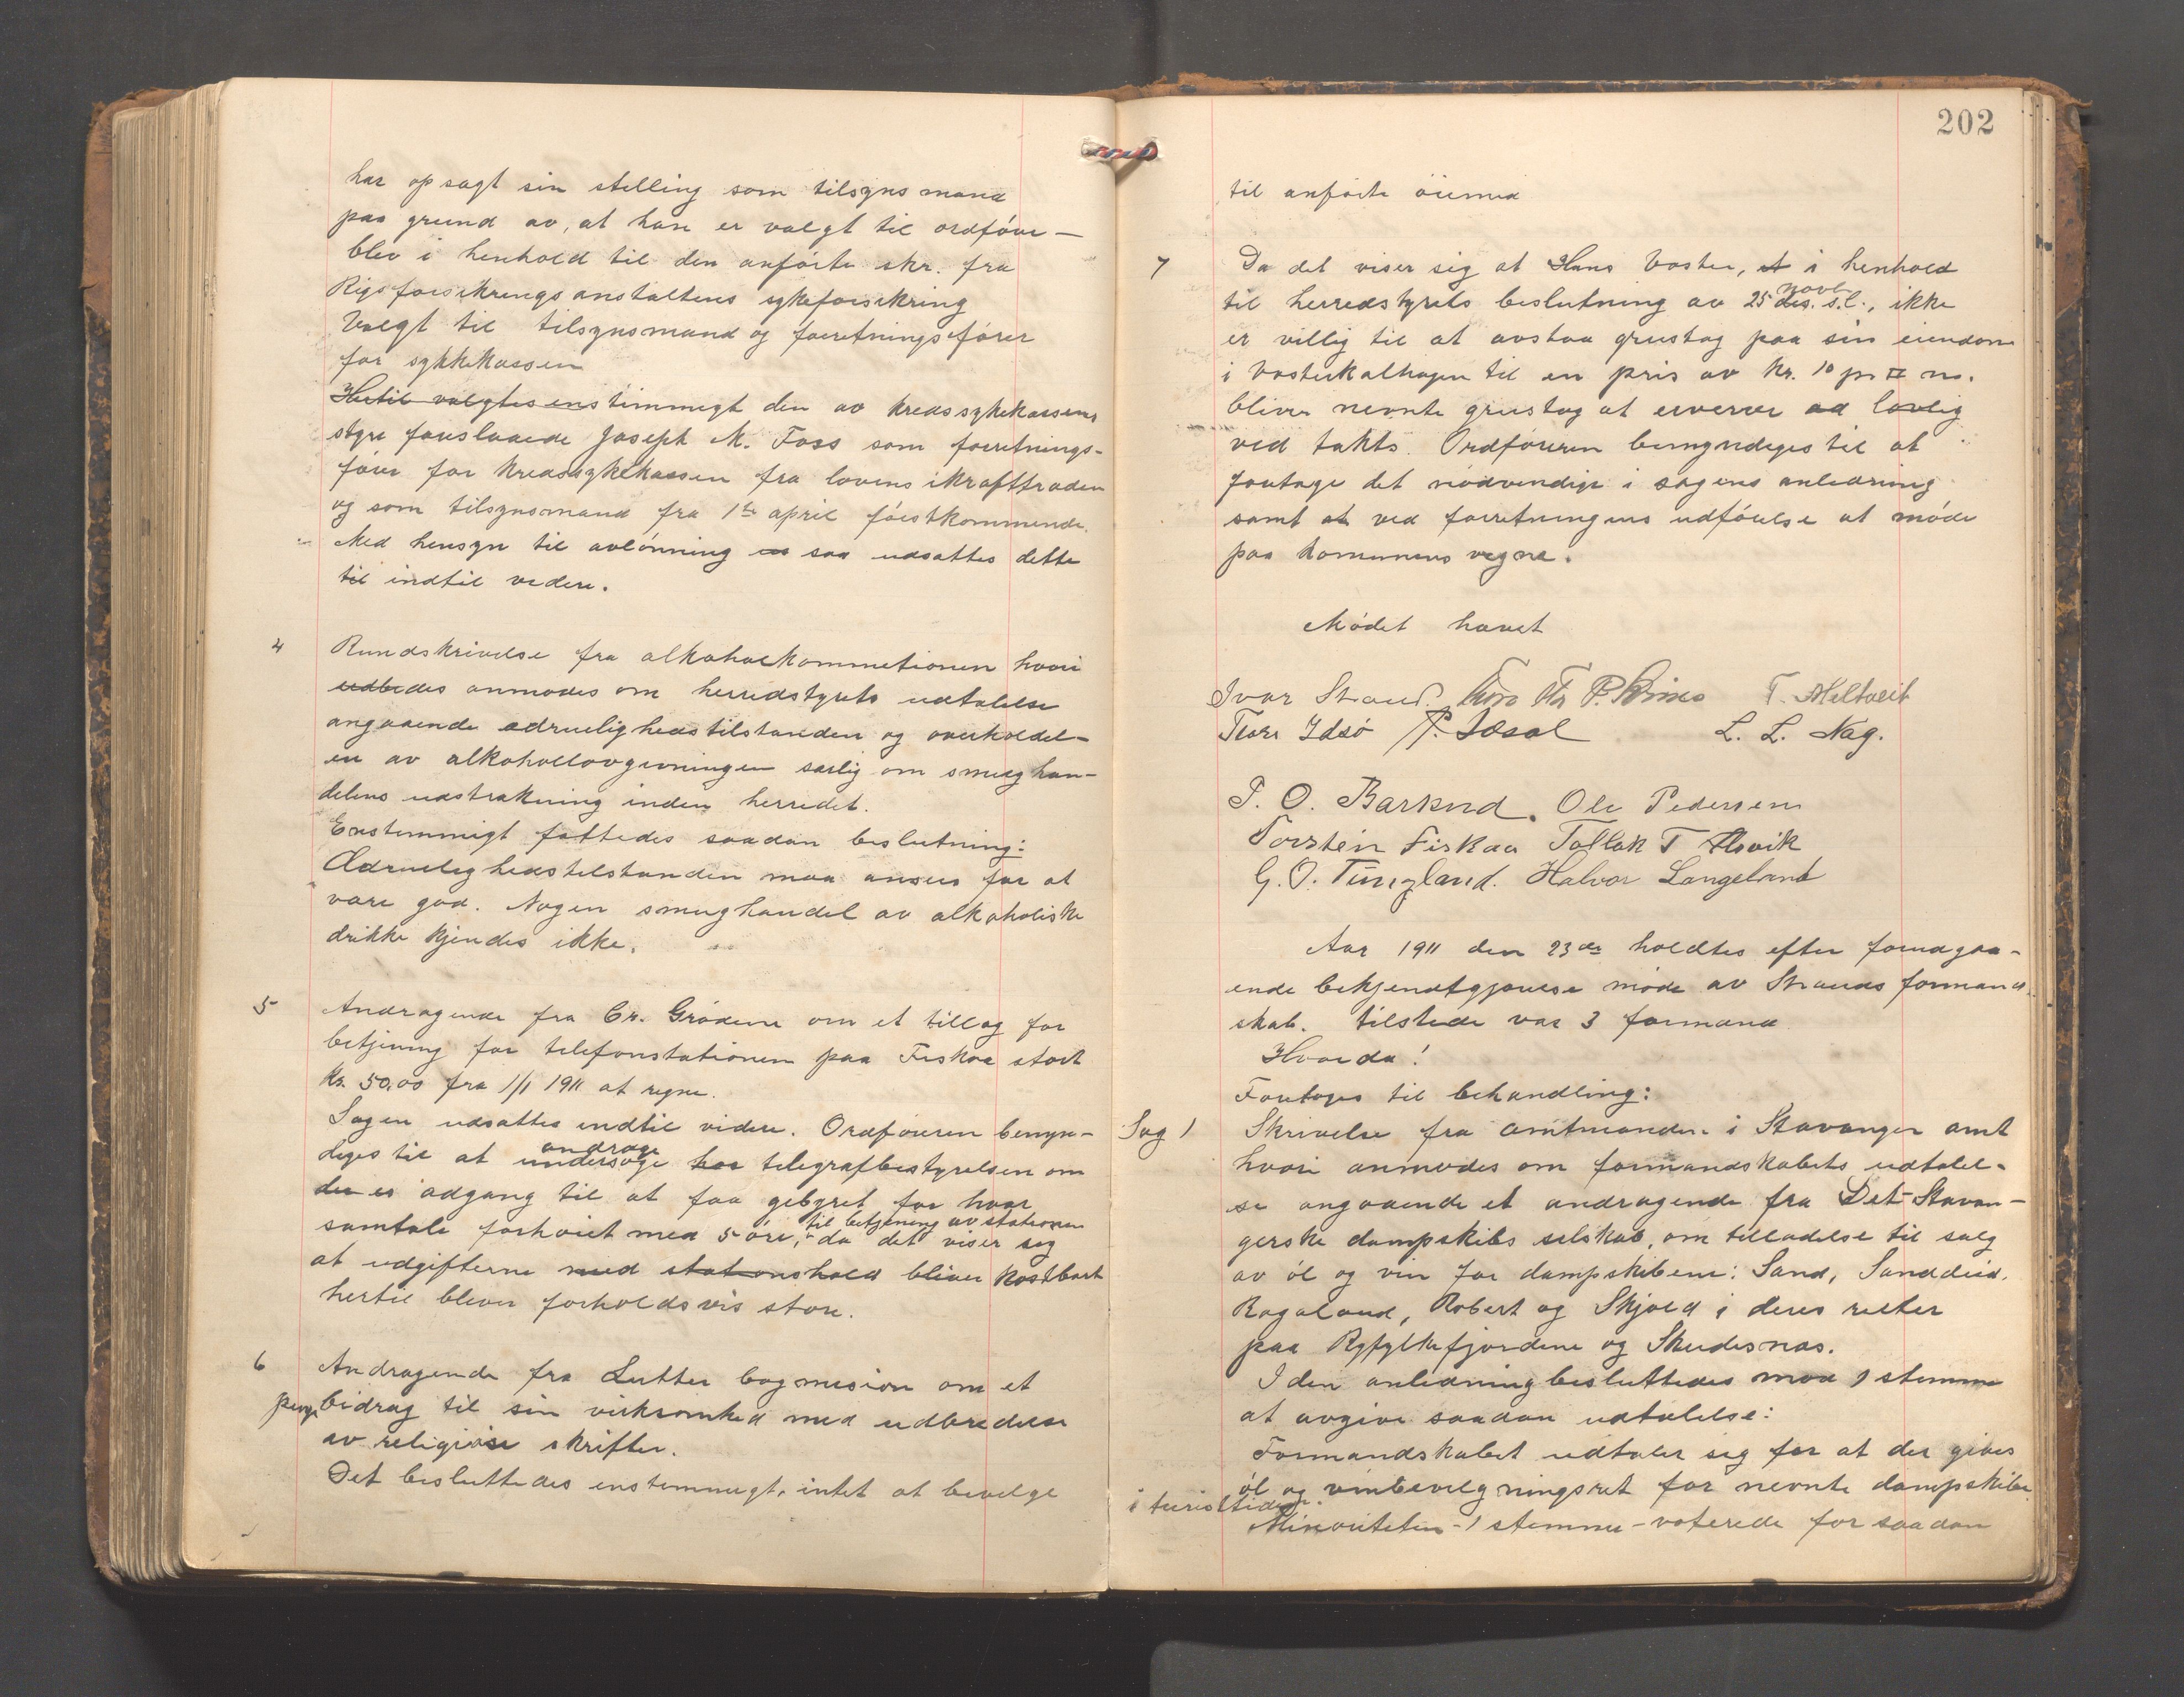 har opsagt sin stelling som tilsynsmand
paa grund av, at han er valgt til ordfører
blev i henhold til den anførte skr. fra
Rigsforsikringsanstaltens sykeforsikring
Valgt til tilsynsmand og forretningsfører
for sykkekassen
Hertil valgtes enstimmigt den av kredssykekassens
styre foreslaaede Joseph M. Foss som forretnings-
fører for kredssykekassen fra lovens ikrafttræden
og som tilsynsmand fra 1ste april førstkommende.
Med hensyn til avlønning saa udsattes dette
til indtil videre.
4 Rundskrivelse fra alkoholkommitionen hvori
udbedes anmodes om herredstyrets udtalelse
angaaende ædruelighedstilstanden og overholdel-
en av alkohollovgivningen særlig om smughan-
delens udstrækning inden herredet.
Enstemmigt fattedes saadan beslutning:
Ædruelighedstilstanden maa ansees for at
være god. Nogen smughandel av alkoholiske
drikke kjendes ikke.
5 Andragende fra Chr. Grødeme om et tillæg for
betjening for telefonstationen paa Fiskaa stort
kr. 50,00 fra 1/1 1911 at regne.
Sagen udsattes indtil videre. Ordføreren bemyn-
andrage
diges til at undersøge hos telegrafbestyrelsen om
der er adgang til at faa gebyret for hver
til betjening av stationen
samtale forhøiet med 5 øre, da det viser seg
at udgifterne med stationshold bliver kostbart
hertil bliver forholdsvis store.
6 Andragende fra Luther bogmision om et
penge bidrag til sin virksomhed med udbredelse
av religiøse skrifter.
Det besluttedes enstemmigt, intet at bevilge
202
til anførte øiemed
7 Da det viser sig at Hans Voster, at i henhold
novbr
til herredstyrets beslutning av 25 des. s.l., ikke
er villig til at avstaa grustag paa sin eiendom
i Vosterkalhagen til en pris av kr. 10 pr □ m.
bliver nevnte grustag at erverver ad lovlig
ved takts. Ordføreren bemyndiges til at
foretage det nødvendige i sagens anledning
samt at ved forretningens udførelse at møde
paa komunens vegne.
Mødet hævet
Ivar Strand. P. Brims T. Meltveit
Tore Idsø P. Idsal L. L. Nag.
T. O. Barkved. Ole Pedersen
Torstein Fiskaa Tollak T Alsvik
G. O. Tungland. Halvor Langeland
Aar 1911 den 23de holdtes efter forudgaa-
ende bekjendtgjørelse møde av Strands formand-
skab. Tilstede var 3 formænd
Hvorda!
Foretoges til behandling:
Sag 1 Skrivelse fra amtmanden i Stavanger amt
hvori anmodes om formandskabets udtalel-
se angaaende et andragende fra Det Stavan-
gerske dampskibs selskab, om tilladelse til salg
av øl og vin for dampskibene: Sand, Sanddeid,
Rogaland, Robert og Skjold i deres ruter
paa Ryfylkefjordene og Skudesnæs.
I den anledning besluttedes mod 1 stemme
at avgive saadan udtalelse:
Formandskabet udtaler sig for at der gives
øl og vinbevilgningsret for nevnte dampskibe
i turisttiden.
Minoriteten - 1 stemme - voterede for saadan